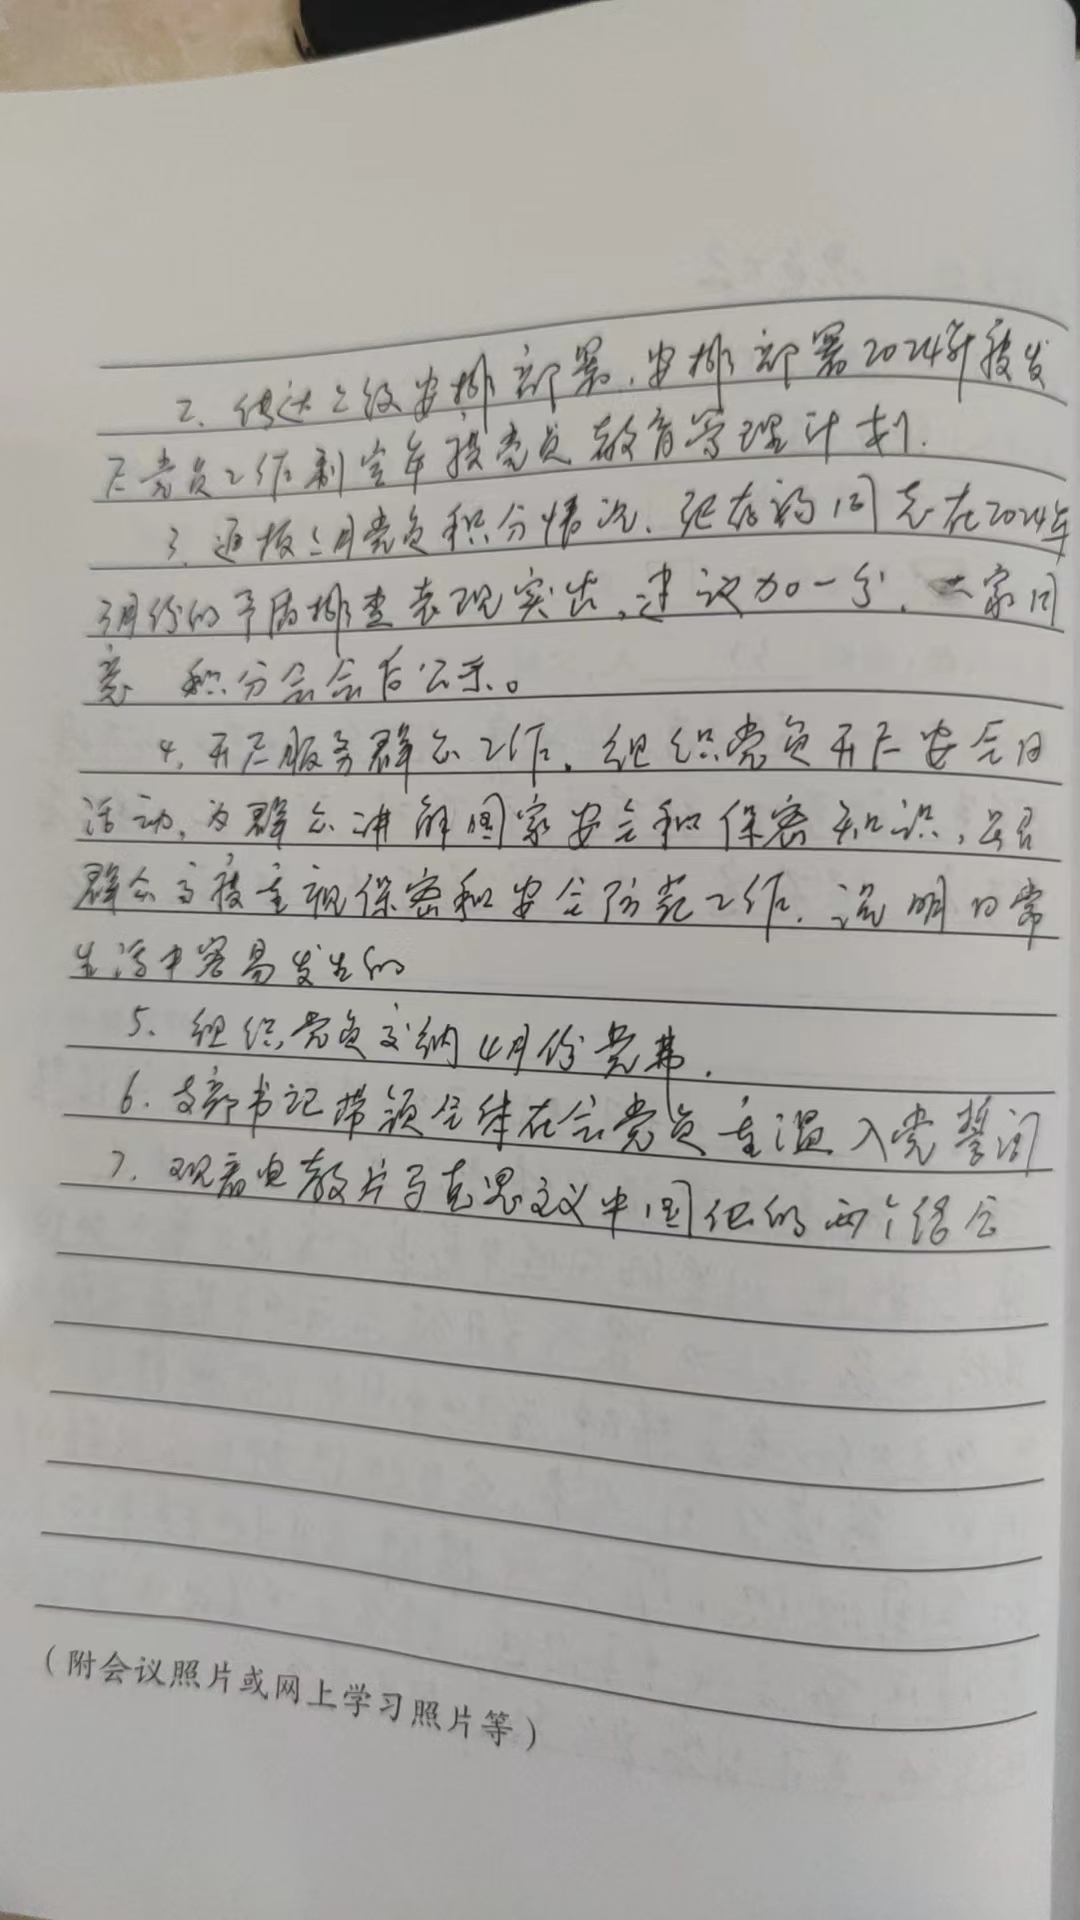 2、传达上级安排部署，安排部署2024年度发
展党员工作制定年度党员教育管理计划.
3、通报3月党员积分情况、 同志在2024年
3月份的矛盾排查表现突出，建议加一分，大家同
意 积分会会后公示。
4、开展服务群众工作。组织党员开展安全日
活动，为群众讲解国家安全和保密知识，号召
群众高度重视保密和安全防范工作. 说明日常
生活中容易发生的
5、组织党员交纳4月份党费.
6、支部书记带领全体在会党员重温入党誓词
7、观看电教片马克思主义中国化的两个结合
(附会议照片或网上学习照片等)